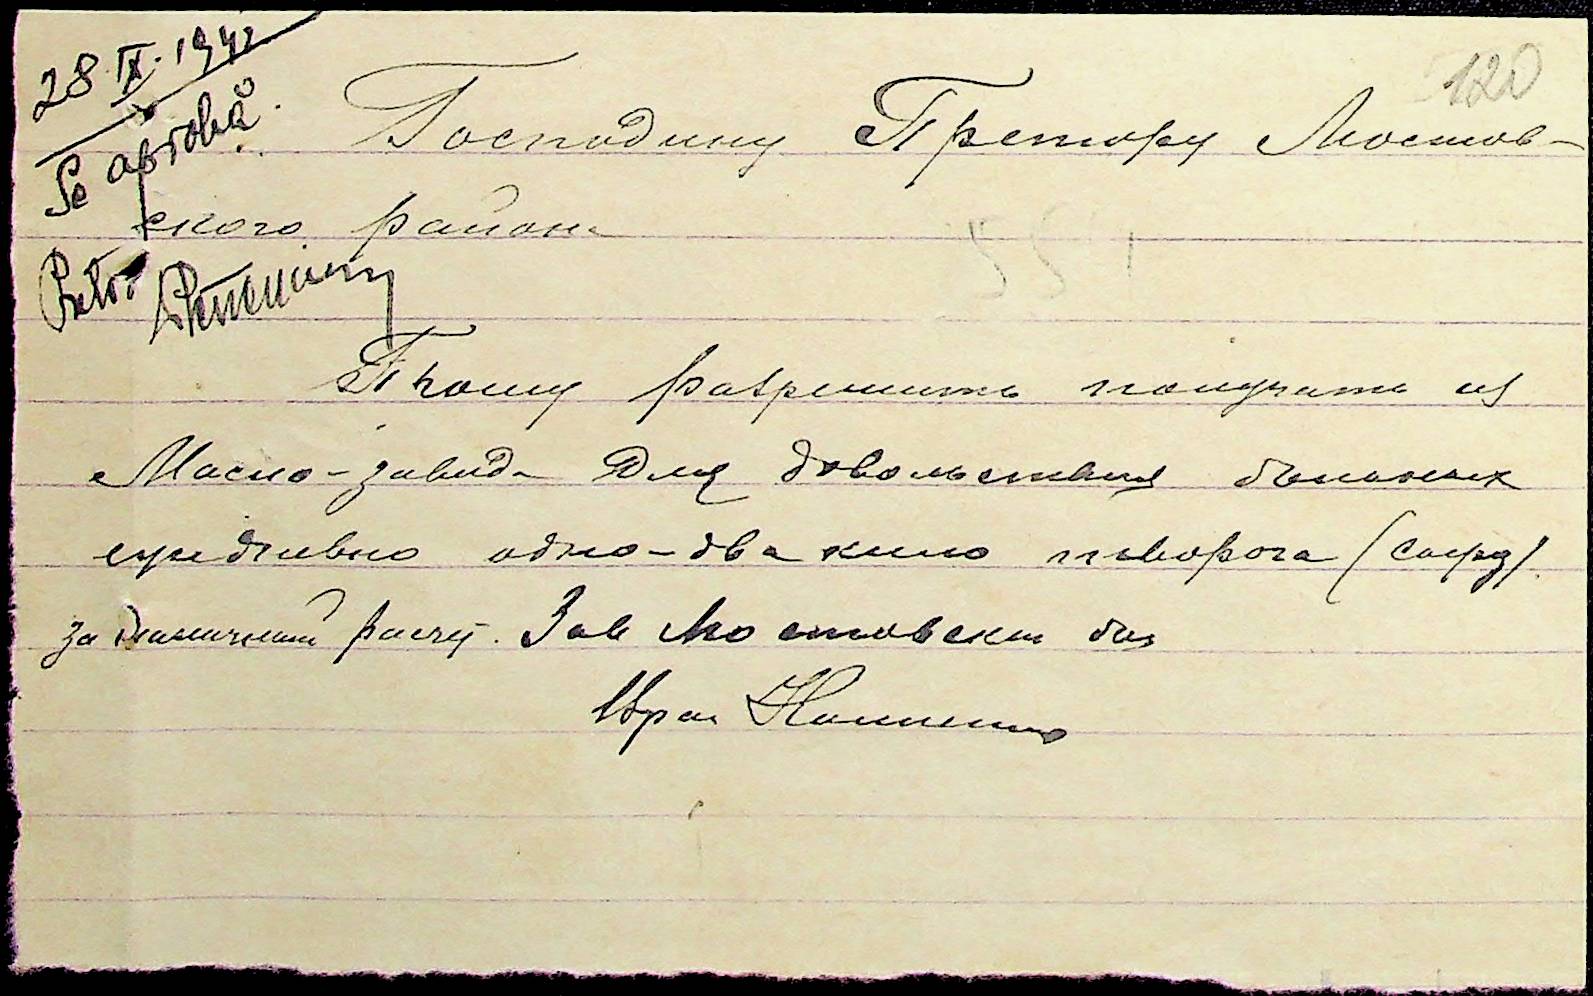 28 IX. 1942
Se aprobă.
Pretor
120
Господину Претору Мостов-
ского района
Прошу разрешить получать из
Масло-завода для довольствия больных
ежедневно одно-два кило творога (сыру)
за наличный расчет. Зав Мостовск бол
Врач